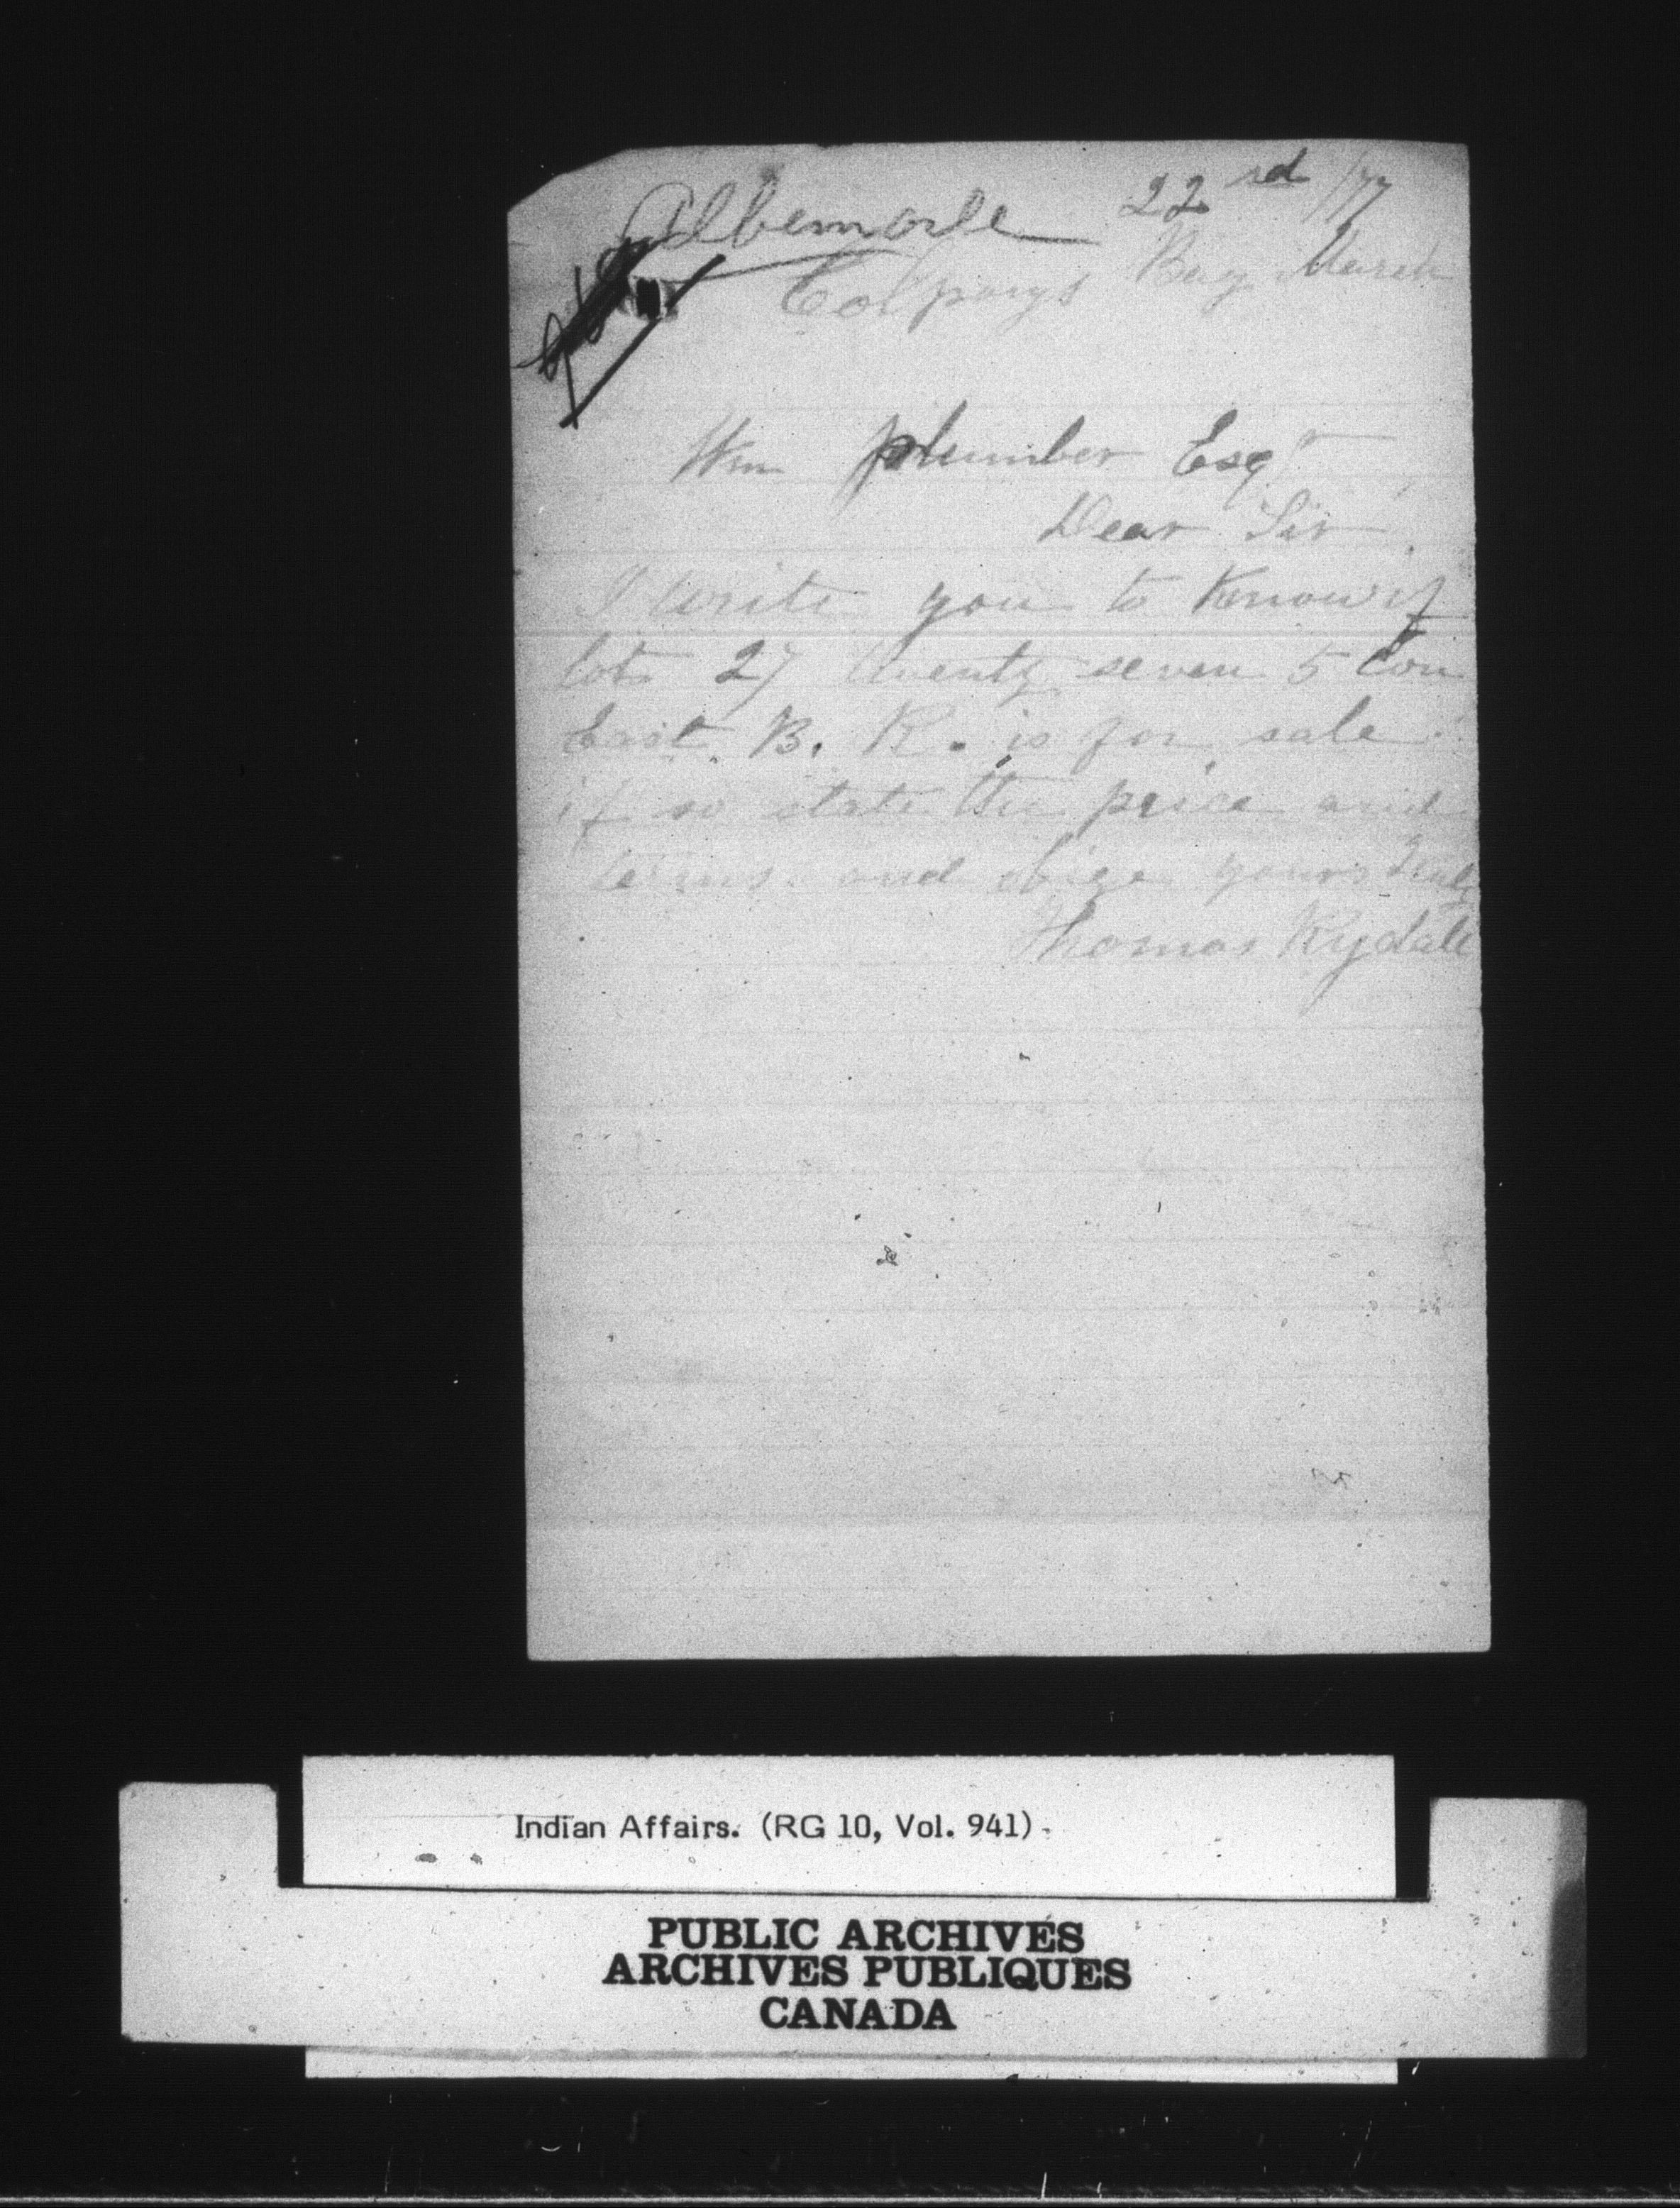 Albemarle 22nd /77
Colpoys Bay March
Wm plumber Esqr
Dear Sir
I write you to Know if
lot 27 twenty seven 5 Con
East B. R. is for sale
if so state the price and
terms and obige yours Truly
Thomas Rydall
Indian Affairs. (RG 10, Vol. 941)
PUBLIC ARCHIVES
ARCHIVES PUBLIQUES
CANADA